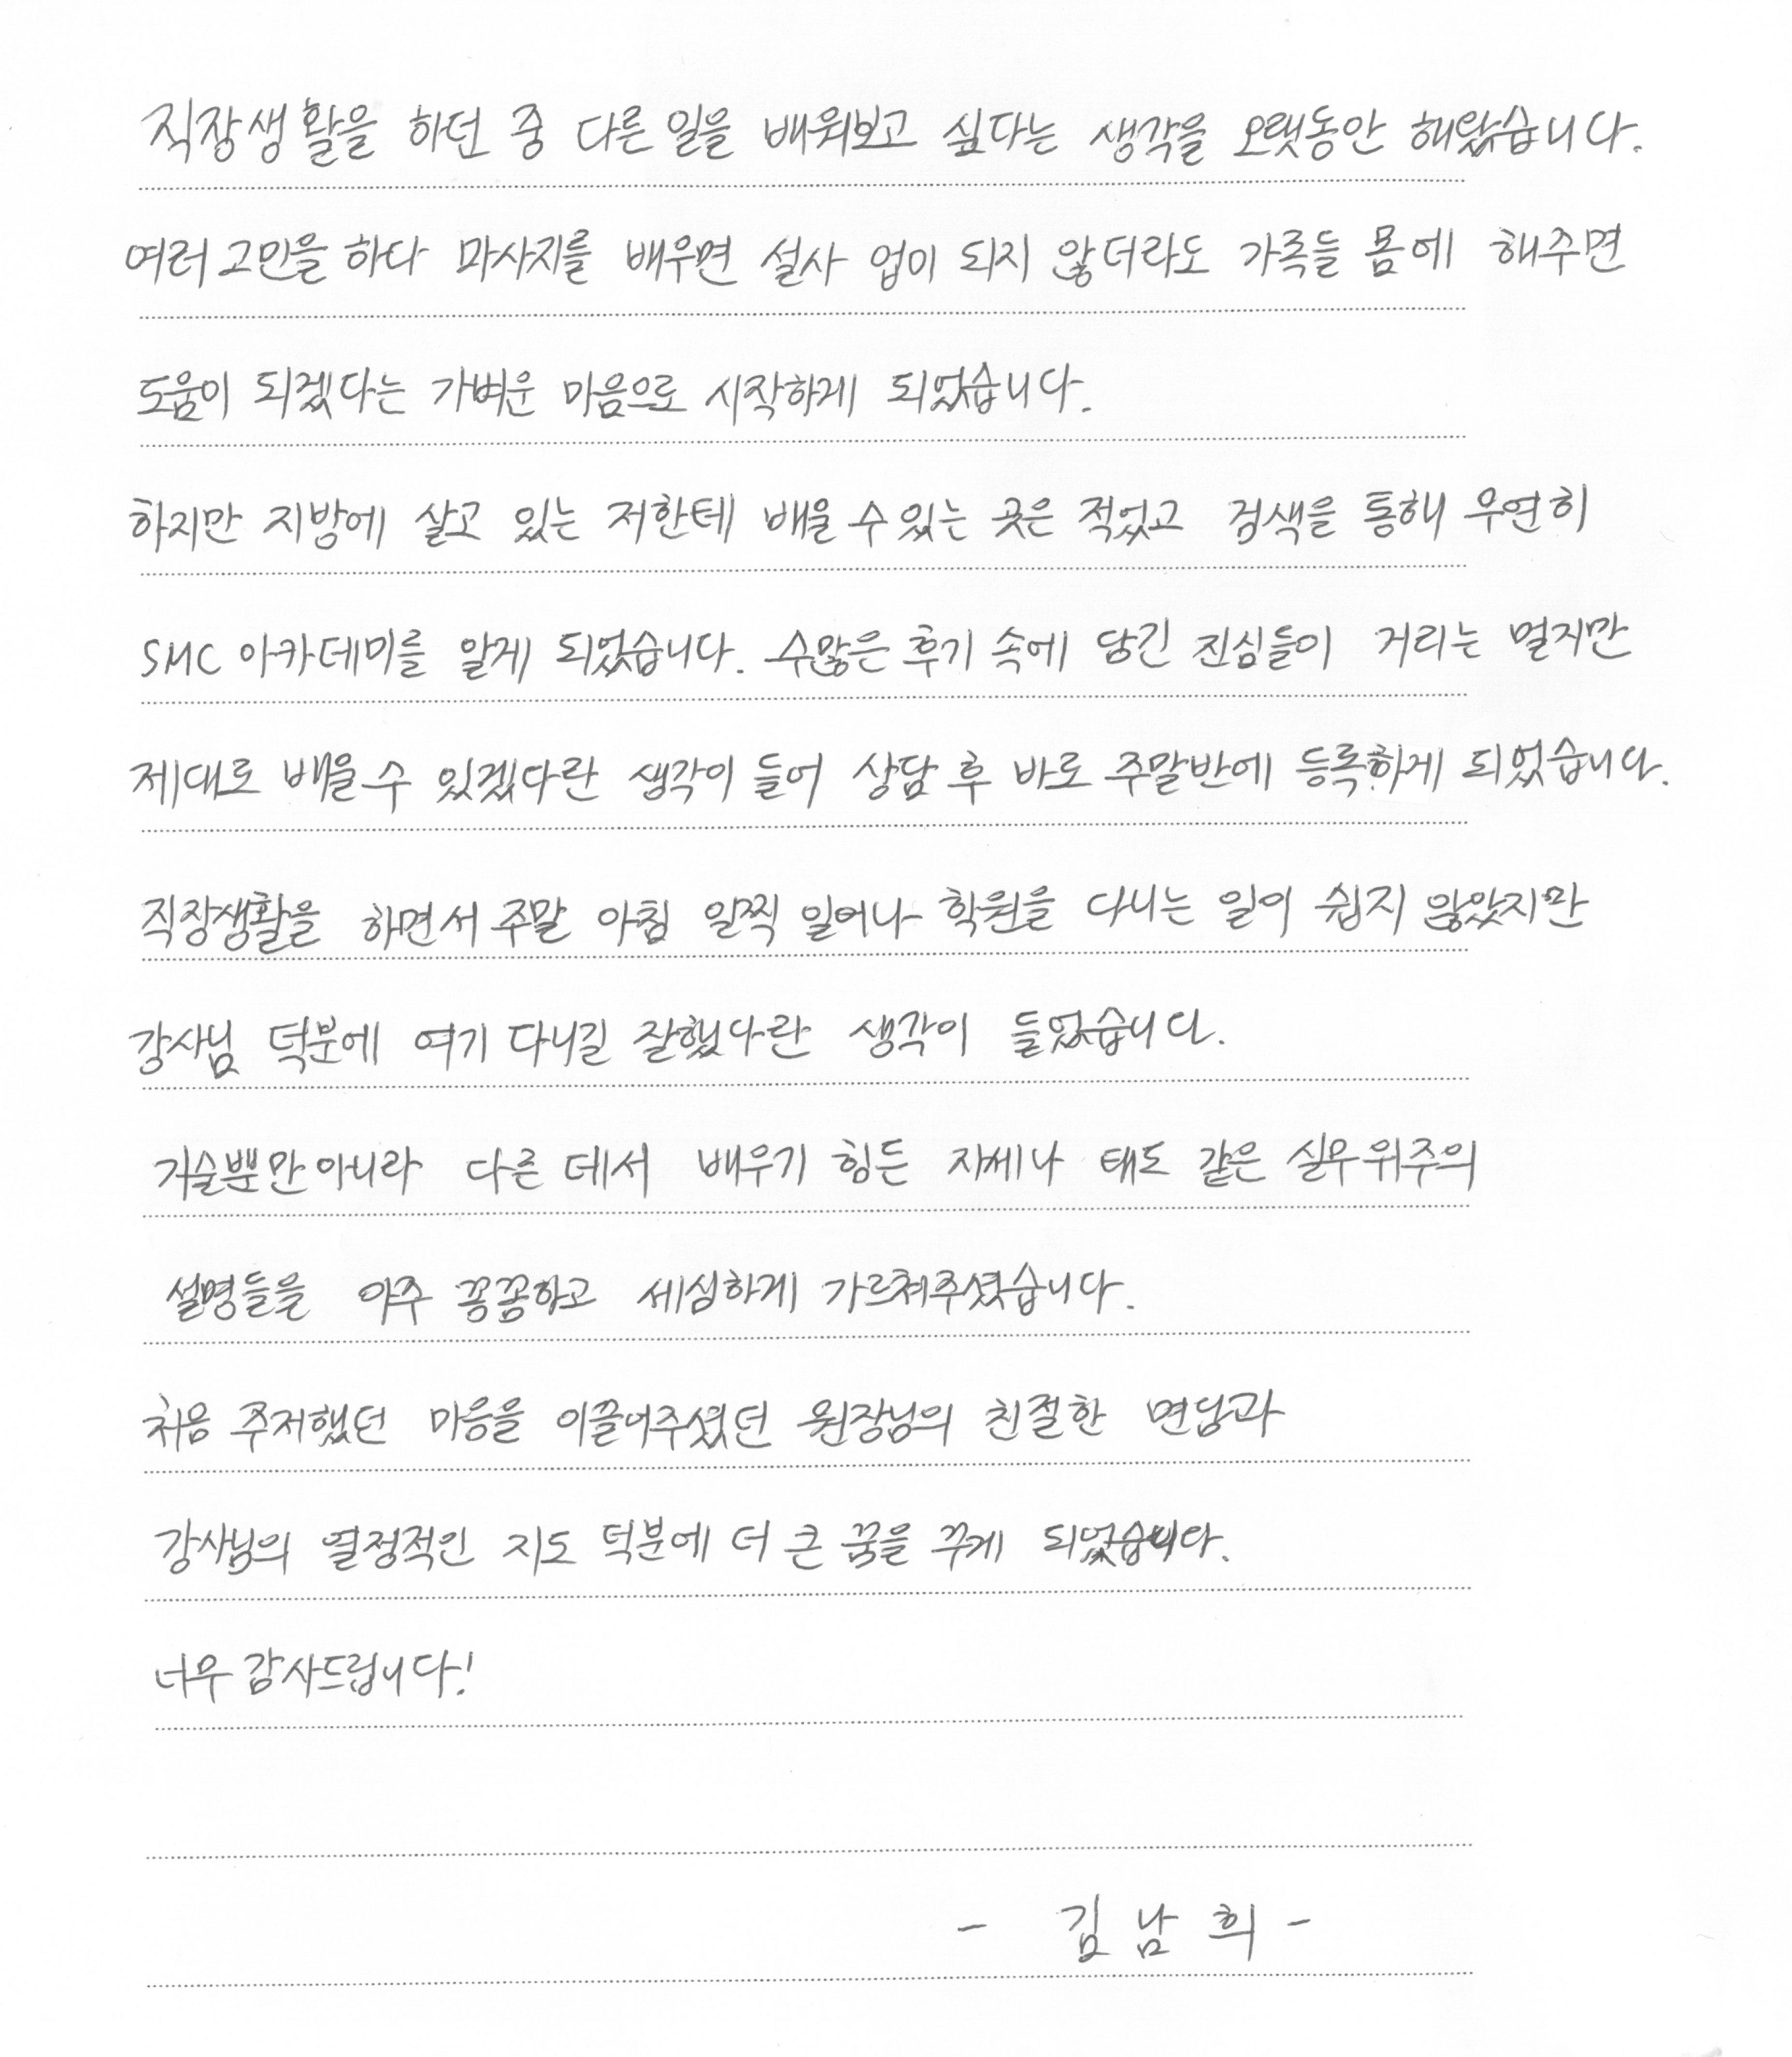 직장생활을 하던 중 다른 일을 배워보고 싶다는 생각을 오랫동안 해왔습니다.
여러 고민을 하다 마사지를 배우면 설사 업이 되지 않더라도 가족들 몸에 해주면
도움이 되겠다는 가벼운 마음으로 시작하게 되었습니다.
하지만 지방에 살고 있는 저한테 배울 수 있는 곳은 적었고 검색을 통해 우연히
SMC 아카데미를 알게 되었습니다. 수많은 후기 속에 담긴 진심들이 거리는 멀지만
제대로 배울 수 있겠다란 생각이 들어 상담 후 바로 주말반에 등록하게 되었습니다.
직장생활을 하면서 주말 아침 일찍 일어나 학원을 다니는 일이 쉽지 않았지만
강사님 덕분에 여기 다니길 잘했다란 생각이 들었습니다.
기술뿐만 아니라 다른 데서 배우기 힘든 자세나 태도 같은 실무 위주의
설명들을 아주 꼼꼼하고 세심하게 가르쳐주셨습니다.
처음 주저했던 마음을 이끌어주셨던 원장님의 친절한 면담과
강사님의 열정적인 지도 덕분에 더 큰 꿈을 꾸게 되었습니다.
너무 감사드립니다!
- 김 남 희 -